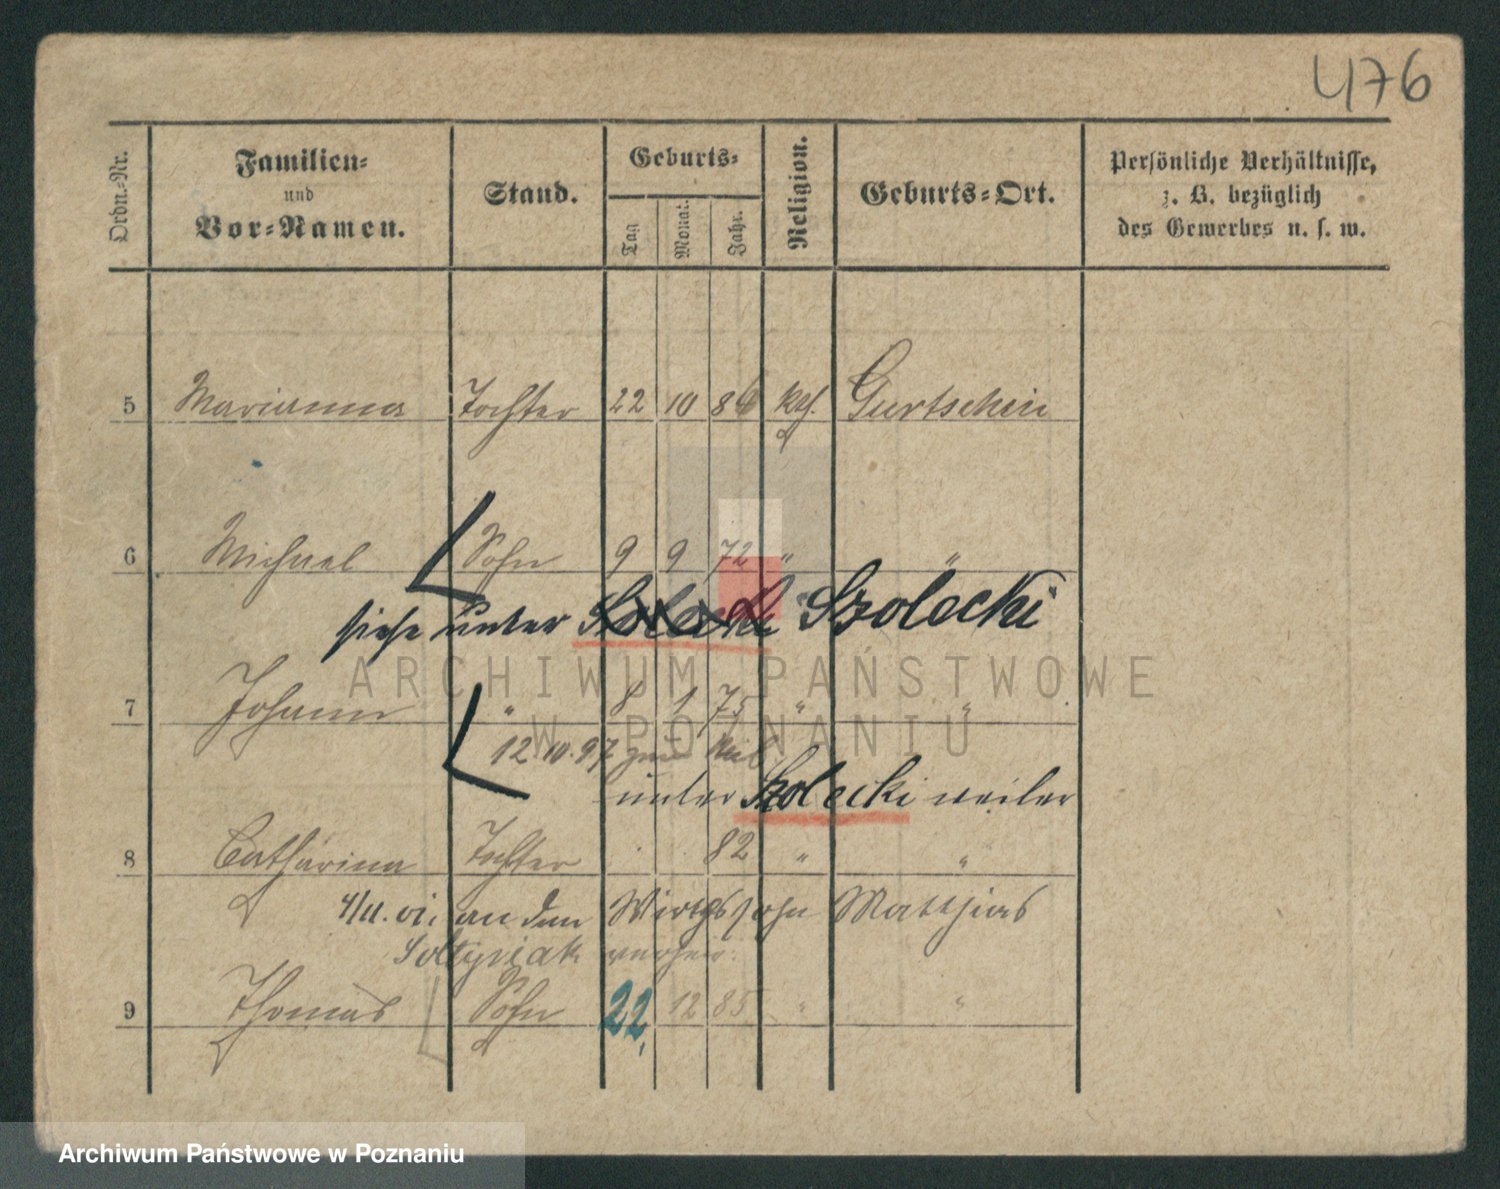 476
Ordn.-Nr. Familien- und Vor-Namen. Stand. Geburts- Tag Monat. Jahr. Religion. Geburts-Ort. Persönliche Verhältnisse, z. B. bezüglich des Gewerbes u. s. w.
5 Marianna Tochter 22 10 86 kth. Gurtschin
6 Michael Sohn 9 9 72 " "
siehe unter Szolecki
7 Johann " 8 1 75 " "
12.10.97 zum
unter Szolecki weiter
8 Catharina Tochter 82 " "
4/11.01. an den Wirthssohn Matthias
Soltysiak verheir.
9 Thomas Sohn 22. 12 85 " "
ARCHIWUM PAŃSTWOWE
W POZNANIU
Archiwum Państwowe w Poznaniu